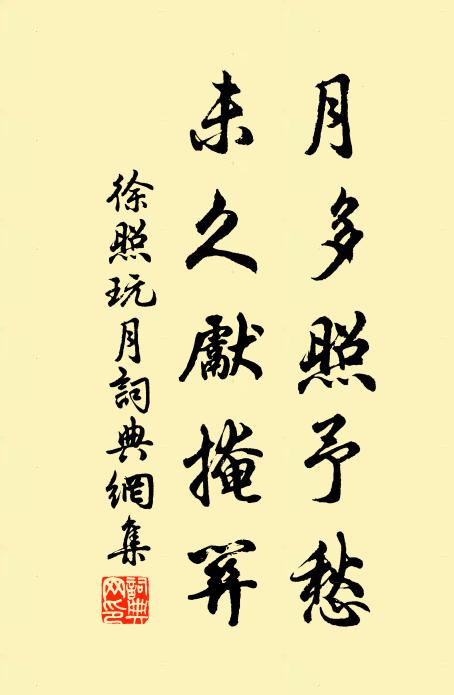 月多照予愁
未久獻掩關
徐照玩月詞典網集
詞典
网印